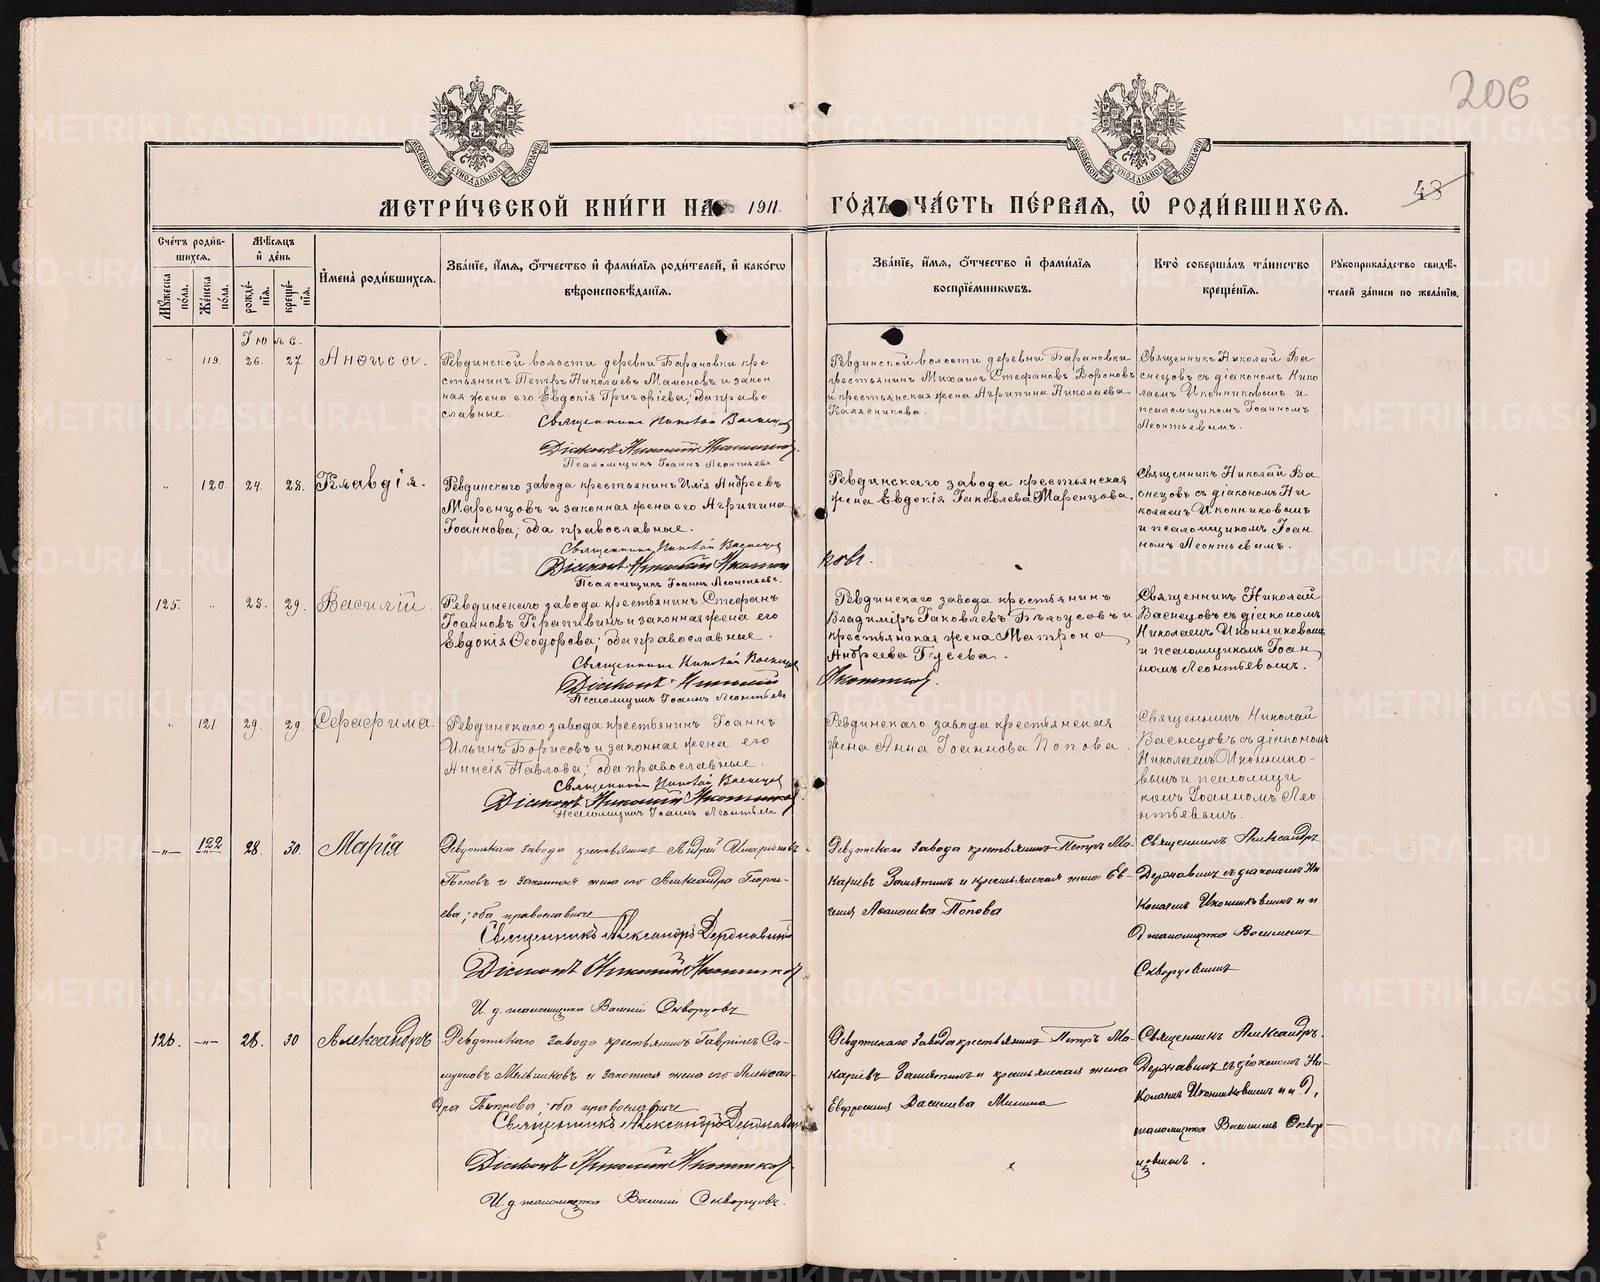 206
48
МЕТРИ́ЧЕСКОЙ КНИ́ГИ НА 1911. ГО́ДЪ ЧА́СТЬ ПЕ́РВАЯ, Ѡ҆ РОДИ́ВШИХСЯ.
Сче́тъ роди́в-
шихся.
Мꙋ́жеска по́ла.
Же́нска по́ла.
Мѣ́сяцъ
и҆ де́нь
рожде́-
нїя.
креще́-
нїя.
И҆мена̀ роди́вшихся.
Зва́нїе, и҆́мя, ѻ҆́тчество и҆ фами́лїя роди́телей, и҆ како́гѡ
вѣроисповѣ́данїя.
Зва́нїе, и҆́мя, ѻ҆́тчество и҆ фами́лїя
воспрїе́мникѡвъ.
Кто̀ соверша́лъ та́инство
креще́нїя.
Рꙋкоприкла́дство свидѣ́-
телей за́писи по жела́нїю.
Іюль.
119. 26. 27. Анѳиса.
Ревдинской волости деревни Барановки кре
стьянинъ Петръ Николаевъ Мамоновъ и закон
ная жена его Евдокія Григоріева; оба право
славные.
Священникъ Николай Васнецовъ
Діаконъ Николай Иконниковъ
Псаломщикъ Іоаннъ Леонтьевъ
Ревдинской волости деревни Барановки
крестьянинъ Михаилъ Стефановъ Вороновъ
и крестьянская жена Агрипина Николаева
Калясникова.
Священникъ Николай Ва
снецовъ съ діакономъ Нико
лаемъ Иконниковымъ и
псаломщикомъ Іоанномъ
Леонтьевымъ.
120. 24. 28. Клавдія.
Ревдинскаго завода крестьянинъ Илія Андреевъ
Маренцовъ и законная жена его Агрипина
Іоаннова; оба православные.
Священникъ Николай Васнецов
Діаконъ Николай Иконни
ковъ.
Псаломщикъ Іоаннъ Леонтьевъ.
Ревдинскаго завода крестьянская
жена Евдокія Іаковлева Маренцова.
Священникъ Николай Ва
снецовъ съ діакономъ Ни
колаемъ Иконниковымъ
и псаломщикомъ Іоан
номъ Леонтьевымъ.
125. 25. 29. Василій.
Ревдинскаго завода крестьянинъ Стефанъ
Іоанновъ Крапивинъ и законная жена его
Евдокія Ѳеодорова; оба православные.
Священникъ Николай Васнецов
Діаконъ Николай
Иконниковъ.
Псаломщикъ Іоаннъ Леонтьевъ
Ревдинскаго завода крестьянинъ
Владиміръ Іаковлевъ Бѣлоусовъ и
крестьянская жена Матрона
Андреева Гусева.
Священникъ Николай
Васнецовъ съ діакономъ
Николаемъ Иконниковымъ
и псаломщикомъ Іоан
номъ Леонтьевымъ.
121. 29. 29. Серафима.
Ревдинскаго завода крестьянинъ Іоаннъ
Ильинъ Борисовъ и законная жена его
Анисія Павлова; оба православные.
Священникъ Николай Васнецов
Діаконъ Николай Иконников
Псаломщикъ Іоаннъ Леонтьевъ
Ревдинскаго завода крестьянская
жена Анна Іоаннова Попова.
Священникъ Николай
Васнецовъ съ діакономъ
Николаемъ Иконнико-
вымъ и псаломщи
комъ Іоанномъ Лео
нтьевымъ.
122 28. 30. Марія
Ревдинскаго завода крестьянинъ Андрей Иларіоновъ
Поповъ и законная жена его Александра Георгі-
ева; оба православные
Священникъ Александръ Державинъ
Діаконъ Николай Иконников
И. д. псаломщика Василій Скворцовъ
Ревдинскаго завода крестьянинъ Петръ Ма-
каріевъ Замятинъ и крестьянская жена Ев-
генія Попова
Священникъ Александръ
Державинъ съ діакономъ Ни-
колаемъ Иконниковымъ и и
д псаломщика Василіемъ
Скворцовымъ
126. 28. 30 Александръ
Ревдинскаго завода крестьянинъ Гавріилъ Са-
муиловъ Мельниковъ и законная жена его Алексан-
дра Петрова; оба православные
Священникъ Александръ Державинъ
Діаконъ Николай Иконников
И. д псаломщика Василій Скворцовъ.
Ревдинскаго завода крестьянинъ Петръ Ма-
каріевъ Замятинъ и крестьянская жена
Евфросинія Василіева Минина
Священникъ Александръ
Державинъ съ діакономъ Ни-
колаемъ Иконниковымъ и и д,
псаломщика Василіемъ Сквор-
цовымъ.
METRIKI.GASO-URAL.RU